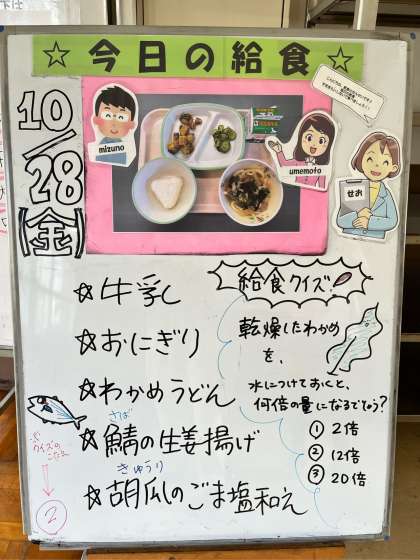 ☆今日の給食☆
10/28(金)
mizuno
umemoto
せお
☆牛乳
☆おにぎり
☆わかめうどん
さば
☆鯖の生姜揚げ
きゅうり
☆胡瓜のごま塩和え
給食クイズ!
乾燥したわかめ
を、
水につけておくと、
何倍の量になるでしょう?
① 2倍
② 12倍
③ 20倍
クイズの
こたえ
②